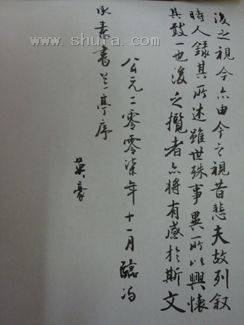 後之視今亦由今之視昔悲夫故列叙
時人錄其所述雖世殊事異所以興懷
其致一也後之攬者亦將有感於斯文
公元二零零柒年十一月臨馮
承素書兰亭序
英豪
www.shufa.com